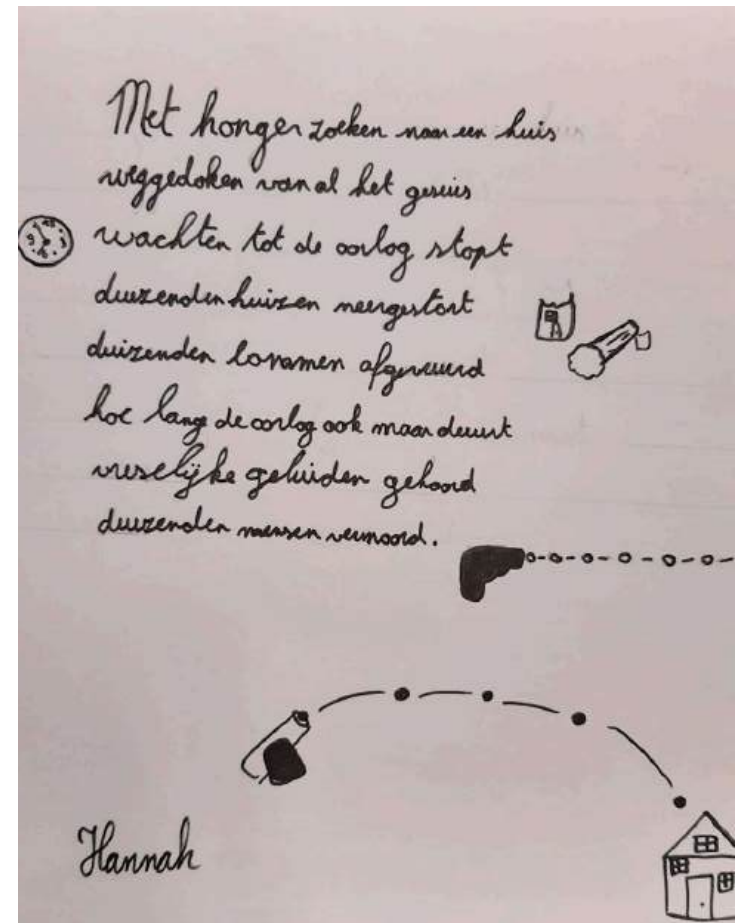 Met honger zoeken naar een huis
weggedoken van al het geruis
wachten tot de oorlog stopt
duizenden huizen neergestort
duizenden bommen afgevuurd
hoe lang de oorlog ook maar duurt
vreselijke geluiden gehoord
duizenden mensen vermoord.
Hannah